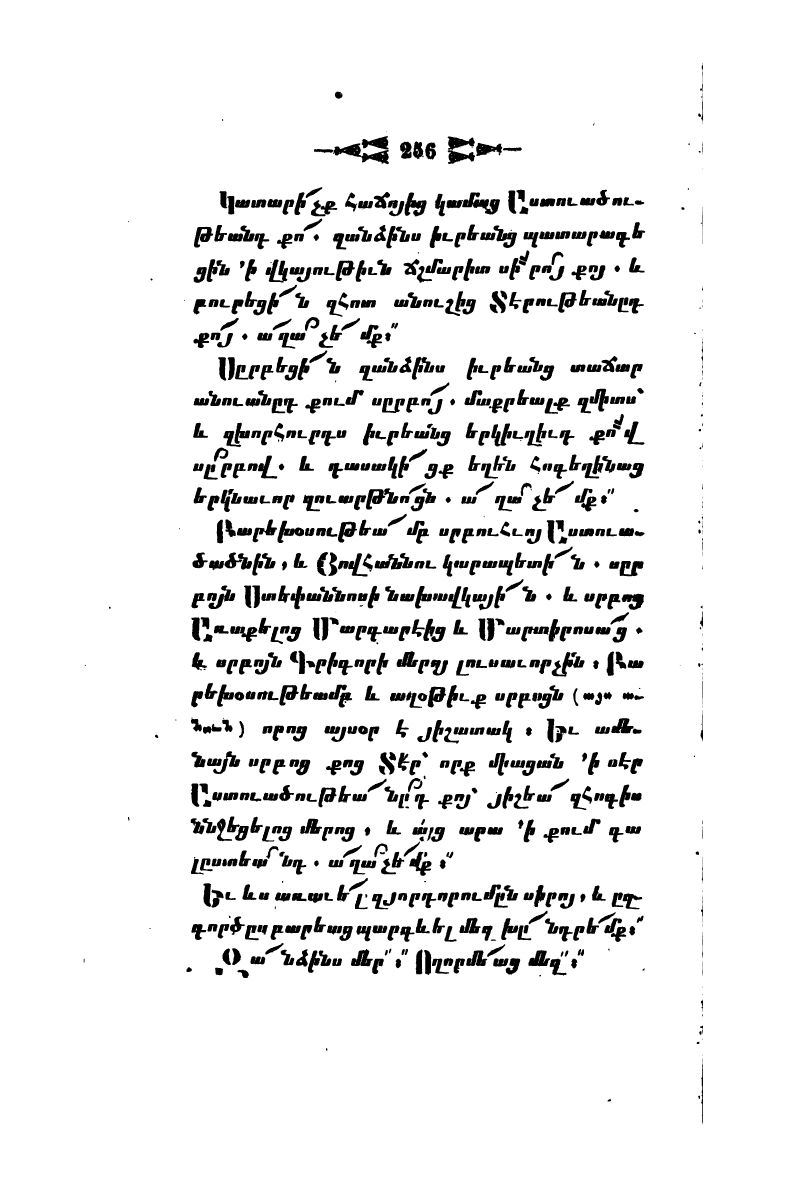 256
Կատարի՛չք հաճոյից կամաց Աստուածու-
թեանդ քո՛. զանձինս իւրեանց պատարագե
ցին ՚ի վկայութիւն ճշմարիտ սի՞րո՜յ քոյ. և
բուրեցի՛ն զհոտ անուշից Տէրութեանըդ
քո՛յ. ա՛ղա՜չե՛մք։
Սըրբեցի՛ն զանձինս իւրեանց տաճար
անուանըդ քում սըրբո՛յ. մաքրեալք զմիտս՝
և զխորհուրդս իւրեանց երկիւղիւդ քո՞վ
սը՜րբով. և դասակի՛ցք եղեն հոգեղինաց
երկնաւոր զուարթնո՛ցն. ա՛ղա՜չե՛մք։
Բարեխօսութեա՛մբ սրբուհւոյ Աստուա-
ծածնին, և Յովհաննու կարապետի՛ն. սըր
բոյն Ստեփաննոսի նախավկայի՛ն. և սրբոց
Առաքելոց Մարգարէից և Մարտիրոսա՛ց.
և սրբոյն Գրիգորի մերոյ լուսաւորչին։ Բա
րեխօսութեամբ և աղօթիւք սրբոցն (այս ա-
նուն) որոց այսօր է յիշատակ։ Եւ ամե-
նայն սրբոց քոց Տէր՝ որք միացան ՚ի սէր
Աստուածութեա՛նը՜դ քոյ՝ յիշեա՛ զհոգիս
ննջեցելոց մերոց, և այց արա ՚ի քում գա
լըստեա՜նդ. ա՛ղա՜չե՛մք։
Եւ ևս առաւե՛լ զյորդորումըն սիրոյ, և ըզ-
գործըս բարեաց պարգևել մեզ խը՛նդրե՛մք։
Զա՛նձինս մեր։ Ողորմե՛աց մեզ։